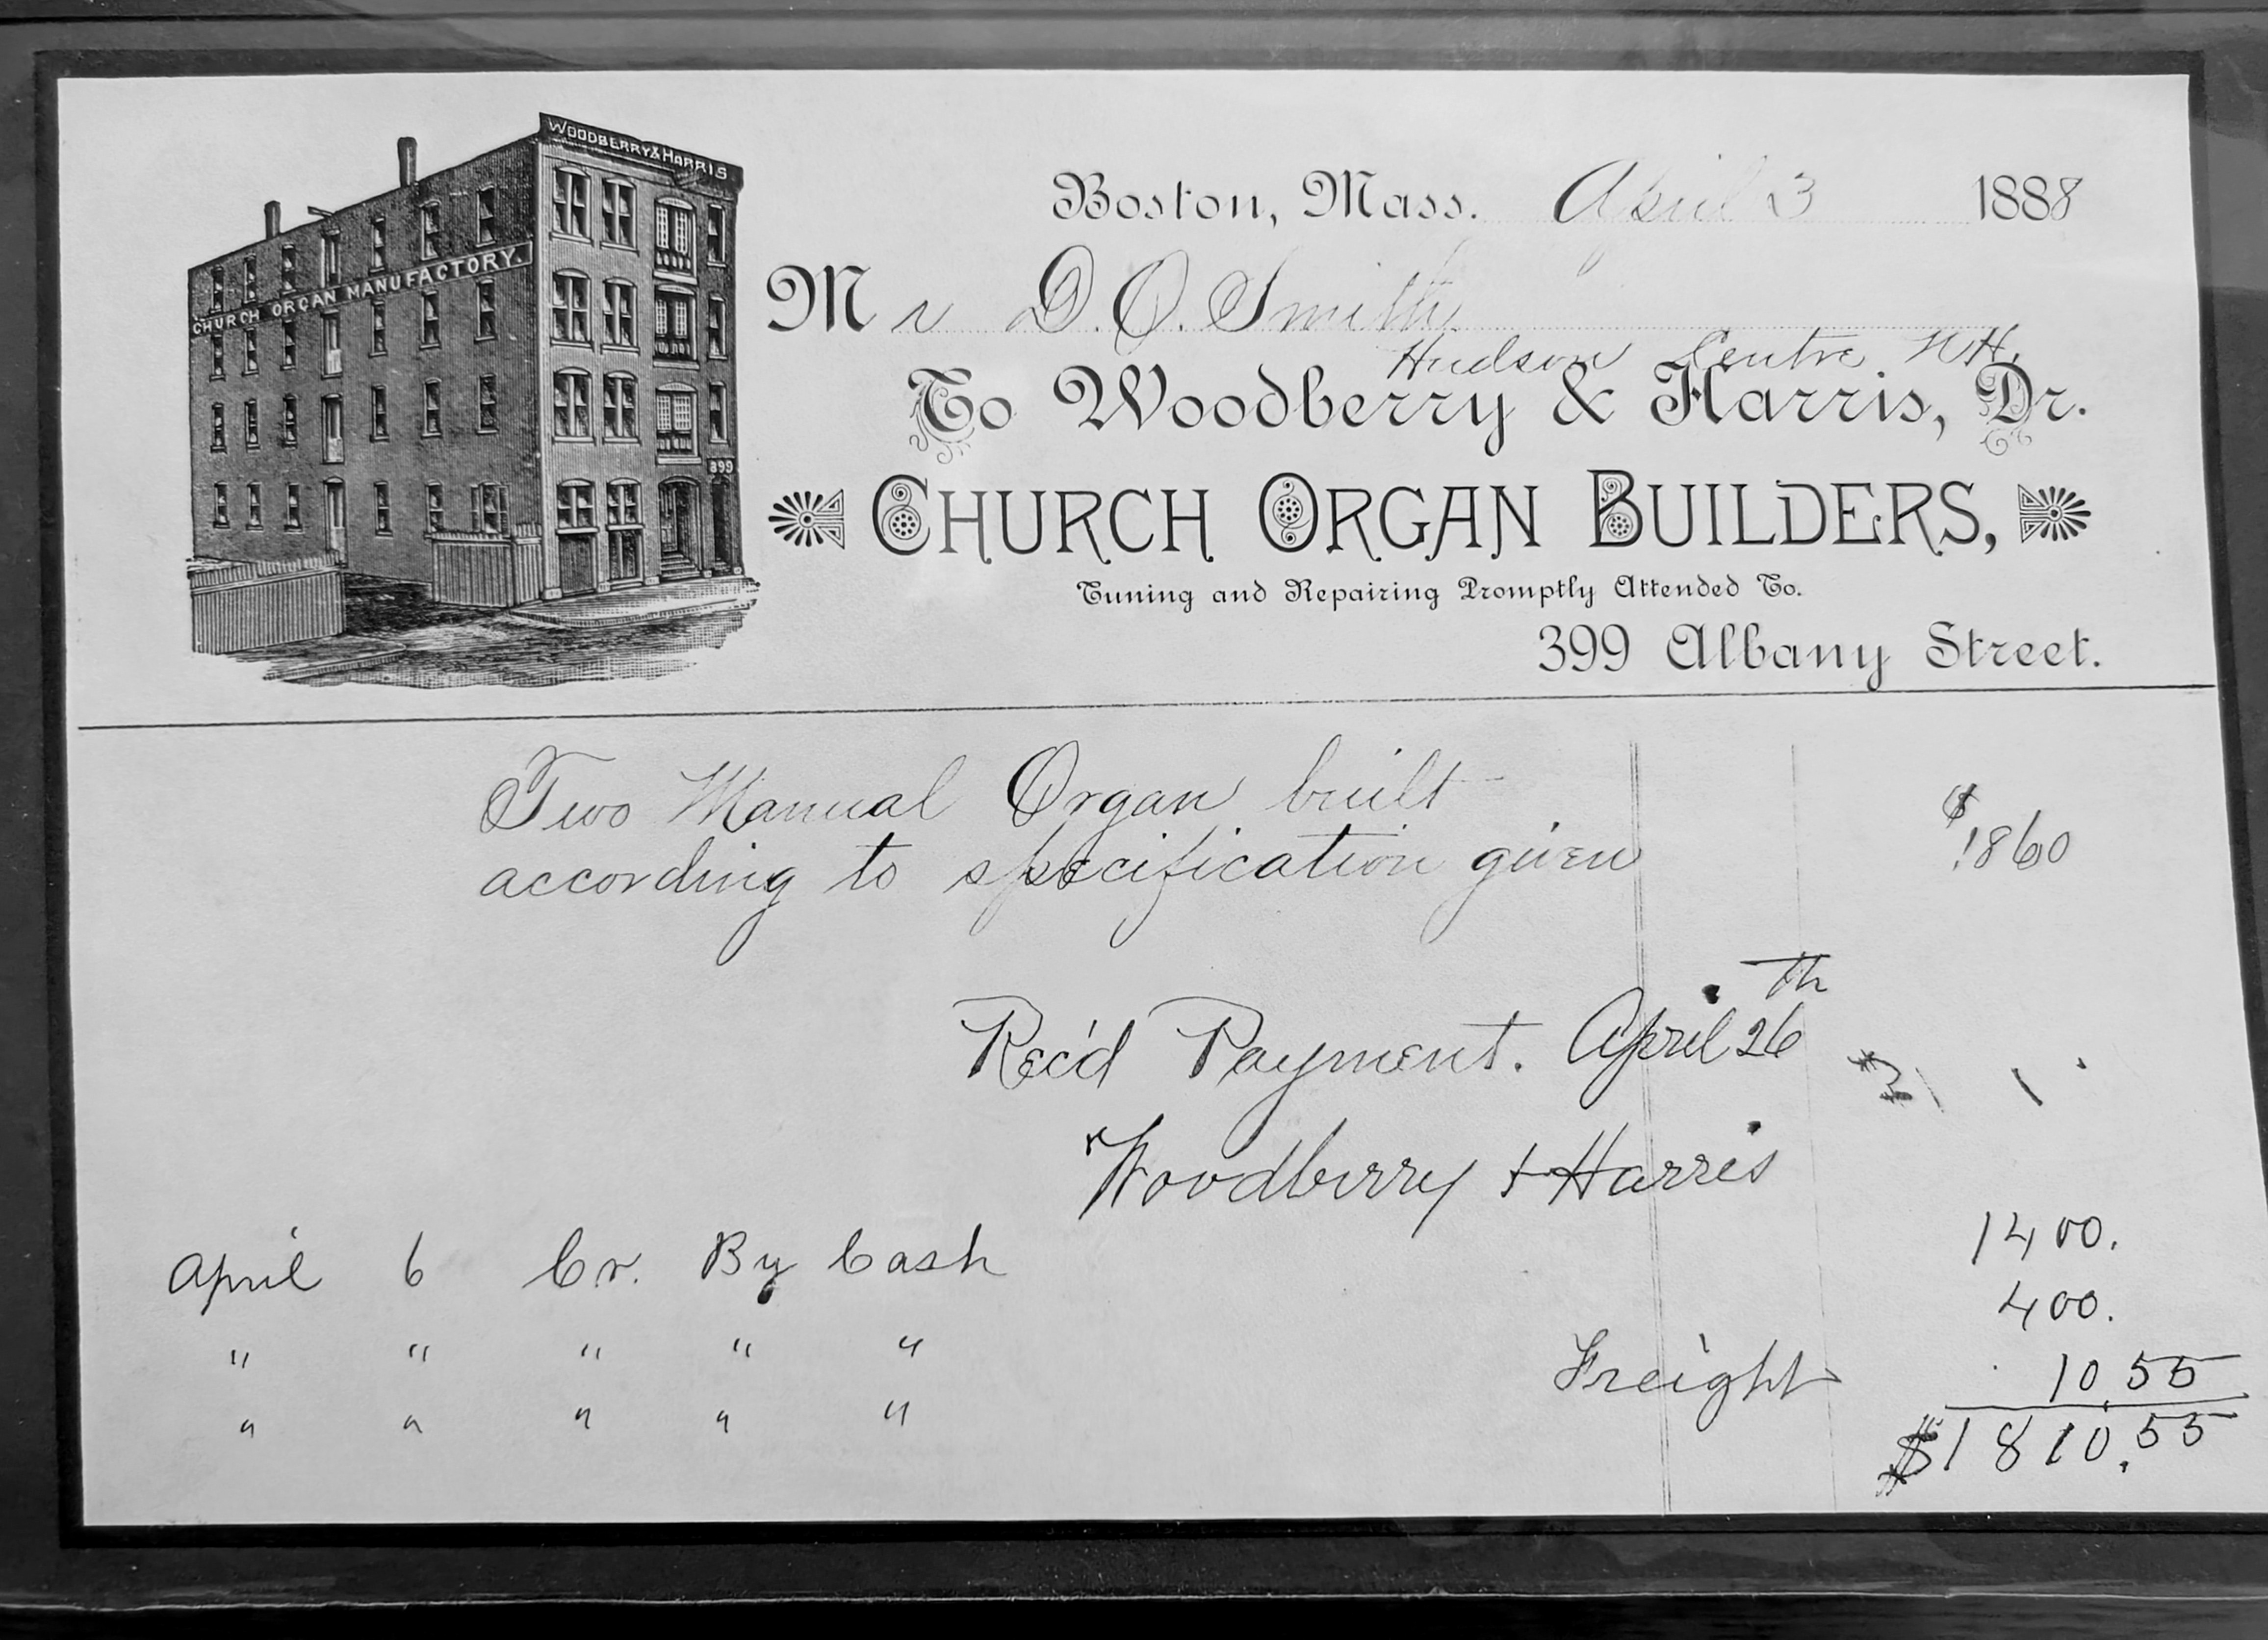 WOODBERRY & HARRIS.
CHURCH ORGAN MANUFACTORY.
399
Boston, Mass. April 3 1888
Mr D. O. Smith
Hudson Centre N.H.
To Woodberry & Harris, Dr.
CHURCH ORGAN BUILDERS,
Tuning and Repairing Promptly Attended To.
399 Albany Street.
Two Manual Organ built
according to specification given $1860
Rec'd Payment. April 26th
Woodberry & Harris
April 6 Cr. By Cash 1400.
" " " " " 400.
" " " " " Freight 10.55
$1810.55